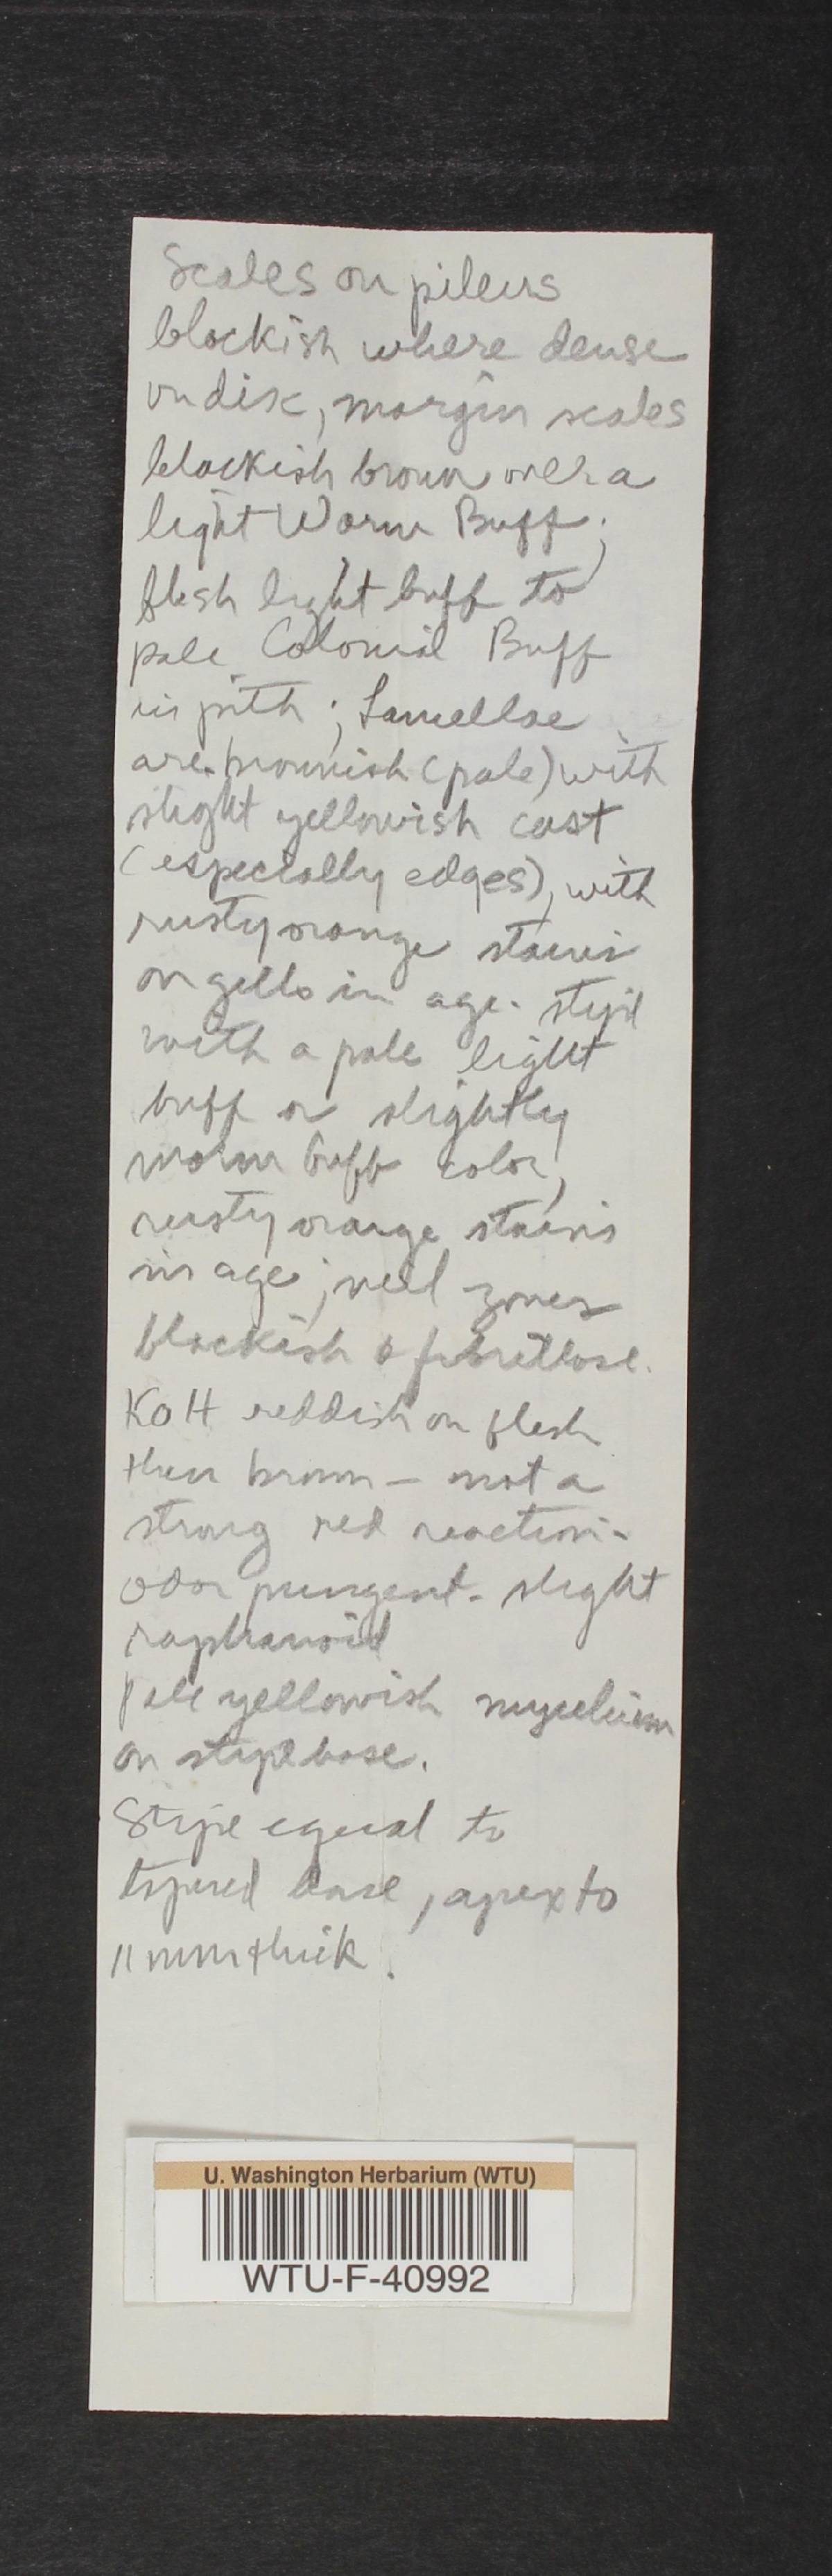 Scales on pileus
blackish where dense
on disc, margin scales
blackish brown over a
light Warm Buff;
flesh light buff to
pale Colonial Buff
in pith; Lamellae
are brownish (pale) with
slight yellowish cast
(especially edges), with
rusty orange stains
on gills in age. stipe
with a pale light
buff or slightly
warm buff color,
rusty orange stains
in age; veil zones
blackish & fibrillose.
KOH reddish on flesh
then brown – not a
strong red reaction.
odor pungent. slight
raphanoid
Pale yellowish mycelium
on stipe base.
Stipe equal to
tapered base, apex to
11 mm thick.
U. Washington Herbarium (WTU)
WTU-F-40992